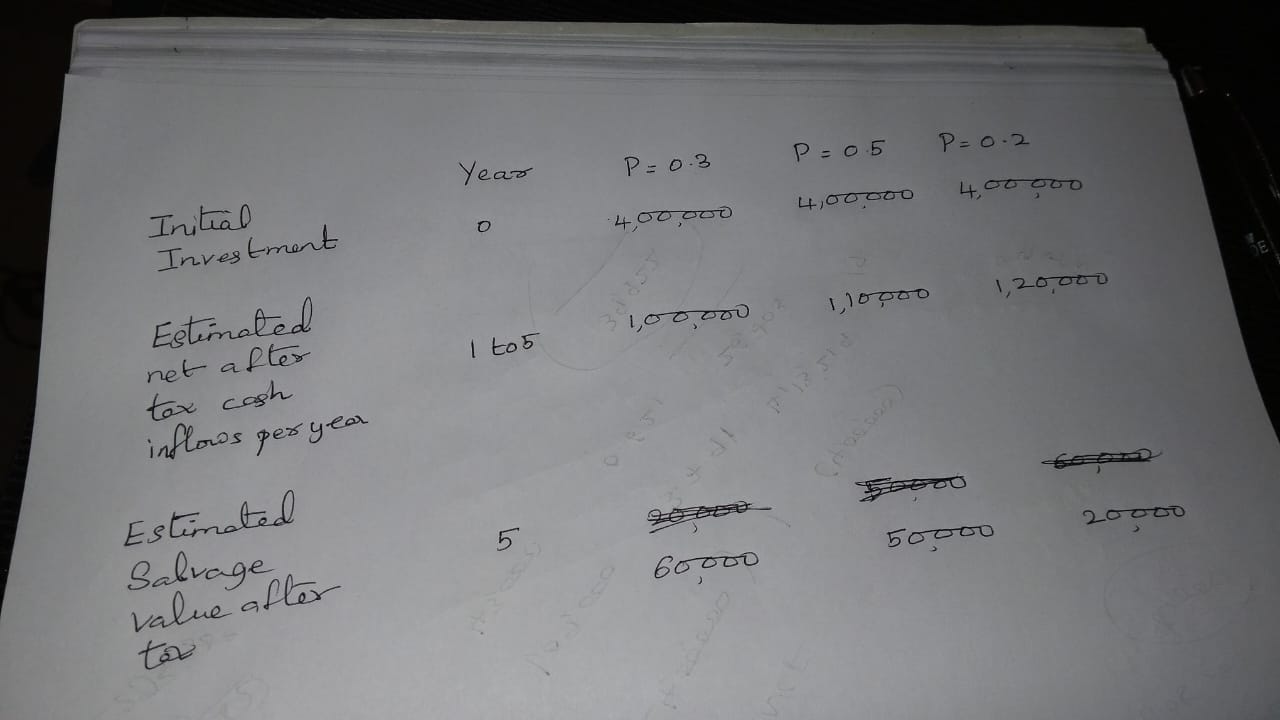 Year P = 0.3 P = 0.5 P = 0.2
Initial
Investment 0 4,00,000 4,00,000 4,00,000
Estimated
net after 1 to 5 1,00,000 1,10,000 1,20,000
tax cash
inflows per year
20,000 50,000 60,000
Estimated
Salvage 5 60,000 50,000 20,000
value after
tax